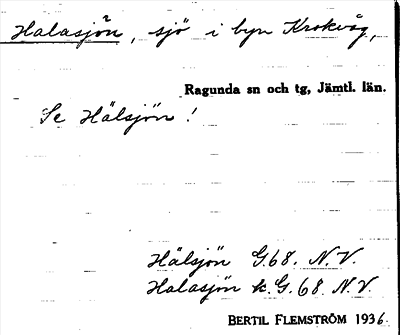 Halasjön, sjö i byn Krokvåg,
Ragunda sn och tg, Jämtl. län.
Se Hälsjön!
Hälsjön G.68. N.V.
Halasjön k. G.68 N.V.
BERTIL FLEMSTRÖM 1936.